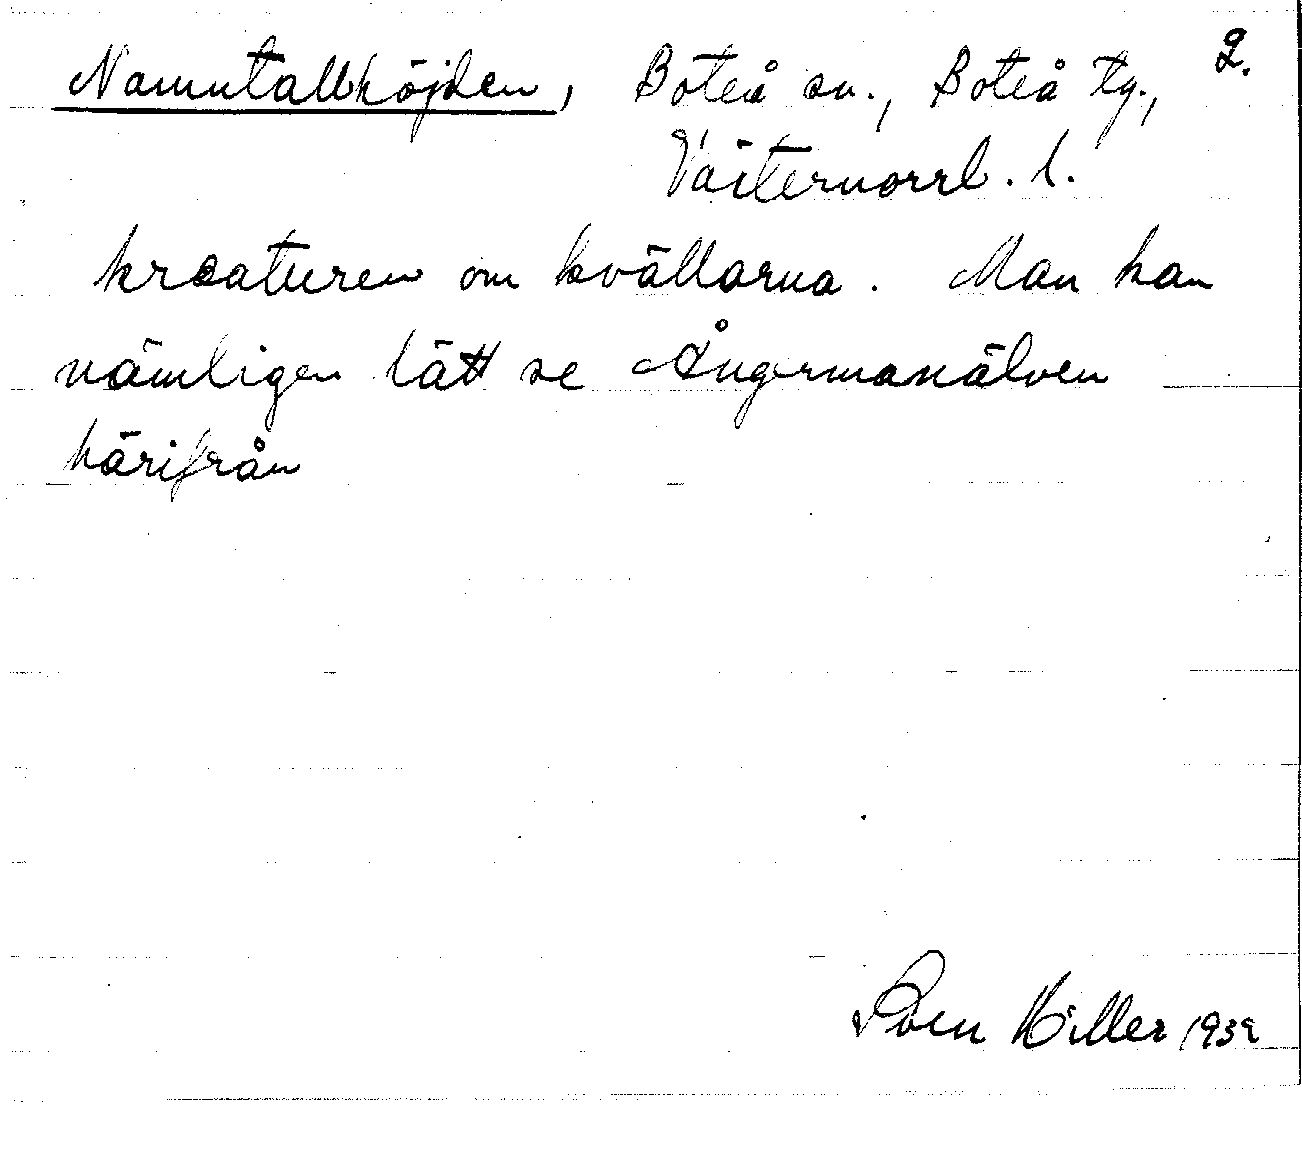 Namntallhöjden, Boteå sn., Boteå tg., 2.
Västernorrl. l.
kreaturen om kvällarna. Man kan
nämligen lätt se Ångermanälven
härifrån
Sven Hiller 1939